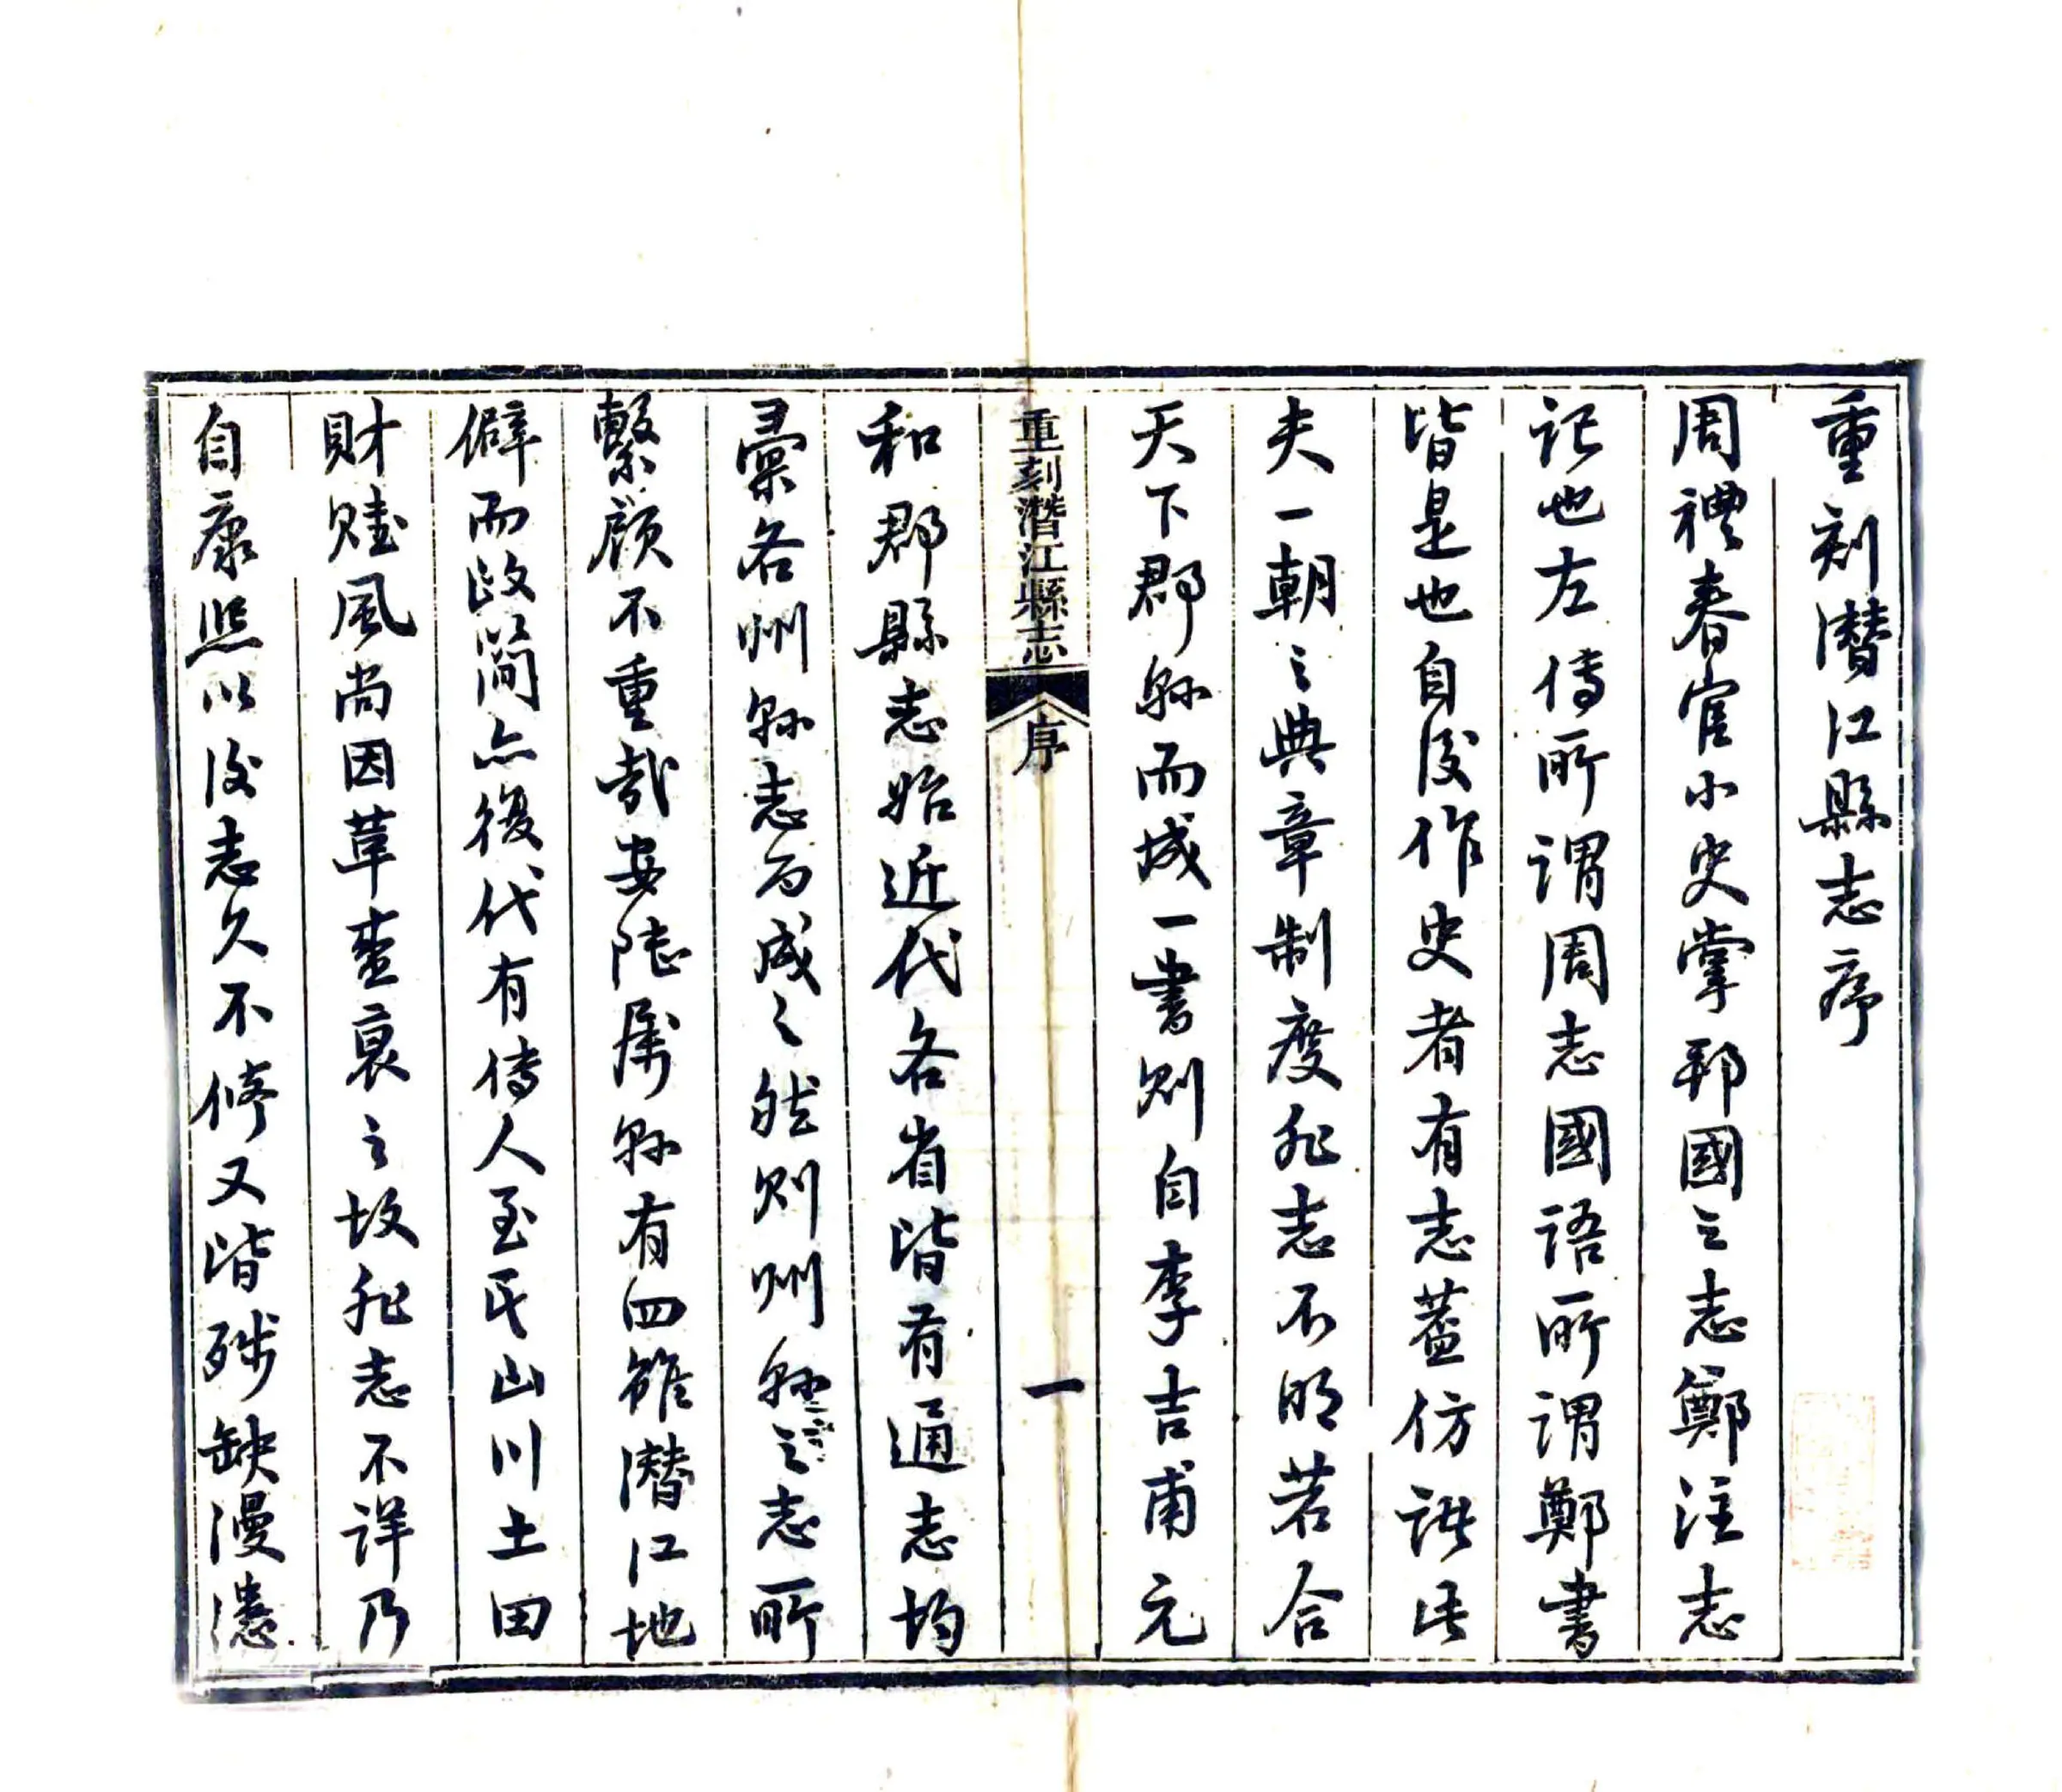 重刻潛江縣志序
周禮春官小史掌邦國之志鄭注志
記也左傳所謂周志國語所謂鄭書
皆是也自後作史者有志蓋仿諸此
夫一朝之典章制度非志不明若合
天下郡縣而成一書則自李吉甫元
重刻潛江縣志 序 一
和郡縣志始近代各省皆有通志均
彙各州縣志而成之然則州縣之志所
繫顧不重哉安陸屬縣有四雖潛江地
僻而政簡亦後代有傳人至民山川土田
財賦風尚因革盛衰之故非志不詳乃
自康熙以後志久不修又皆殘缺漫漶